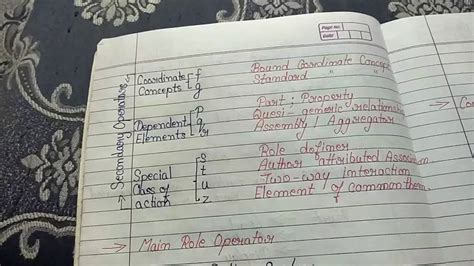 Page No:
Date:
Coordinate f Bound Coordinate Concep
Concepts g Standard " "
Dependent p Part; Property
Elements q Quasi-generic relations
r Assembly / Aggregator
Special s Role definer
Class of t Author attributed Associa
action u Two-way interaction
z Element / of common them
→ Secondary Operators
→ Main Role Operator